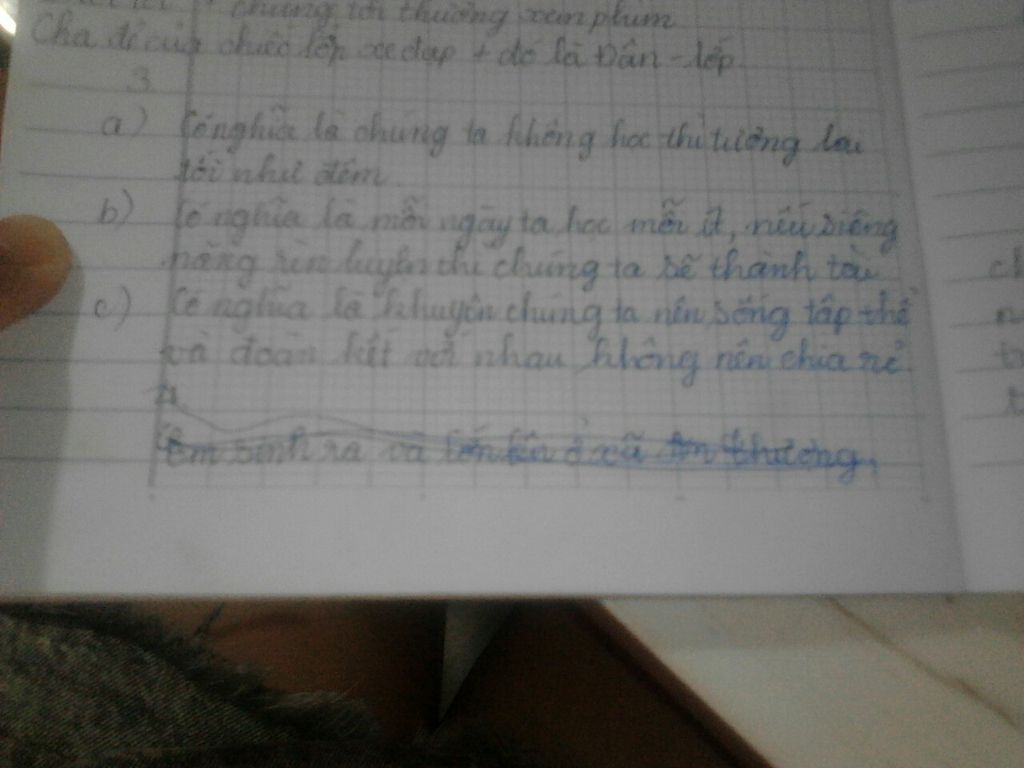 chúng tôi thường xem phim
Cha đẻ của chiếc lốp xe đạp + đó là Đân-lốp
3
a) Có nghĩa là chúng ta không học thì tương lai
tối như đêm.
b) Có nghĩa là mỗi ngày ta học mỗi ít, nếu siêng
năng rèn luyện thì chúng ta sẽ thành tài
c) Có nghĩa là khuyên chúng ta nên sống tập thể
và đoàn kết với nhau không nên chia rẻ
4
Em sinh ra và lớn lên ở xã thương,